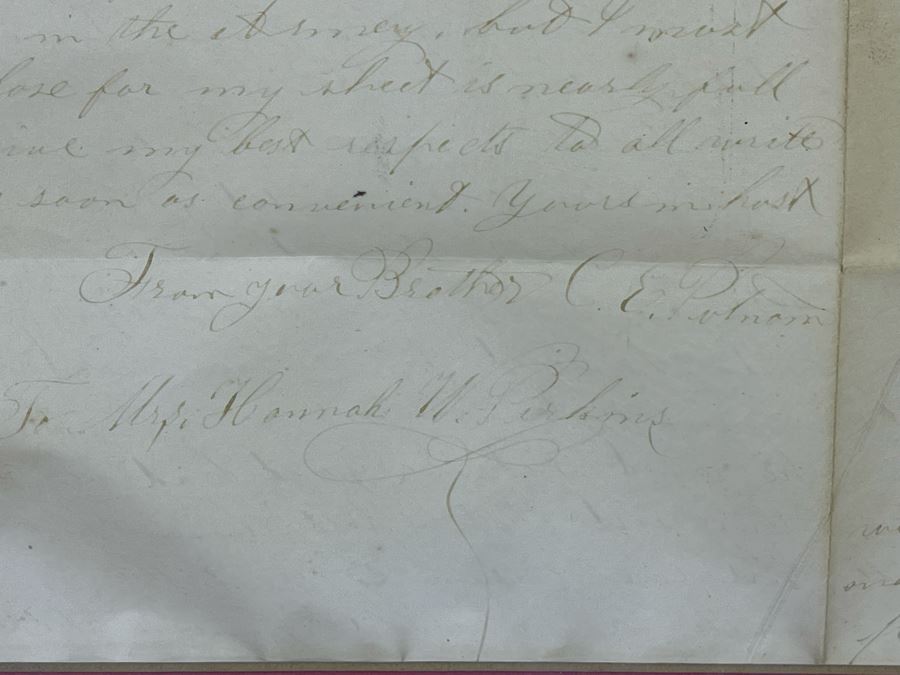 in the , but I must
lose for my sheet is nearly full
ive my best respects to all write
soon as convenient. Yours in hast
From your Brother C. E. Putnam
To Mrs. Hannah W. Perkins